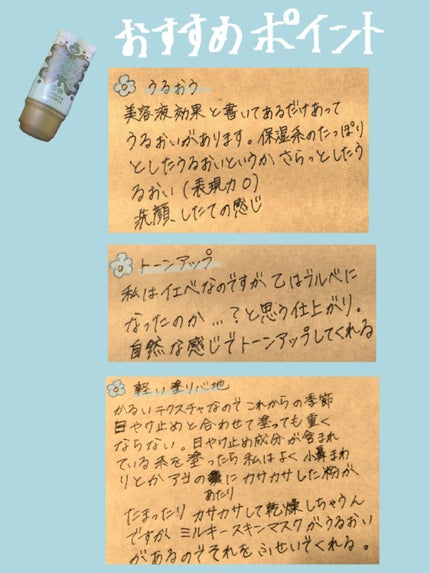 おすすめポイント
うるおう
美容液効果と書いてあるだけあって
うるおいがあります。保湿系のたっぷり
としたうるおいというか、さらっとしたう
るおい(表現力0)
洗顔、したての感じ
トーンアップ
私はイエベなのですが、乙はブルベに
なったのか…?と思う仕上がり。
自然な感じでトーンアップしてくれる
軽い塗り心地
かるいテクスチャなので これからの季節
日やけ止めと合わせて塗っても重く
ならない。日やけ止め成分が含まれ
ている系を塗ったら私はよく小鼻まわ
りとか アゴの に カサカサした粉が
あたり
たまったり カサカサして乾燥しちゃうん
ですが、ミルキースキンマスクがうるおい
があるのでそれをふせいでくれる。